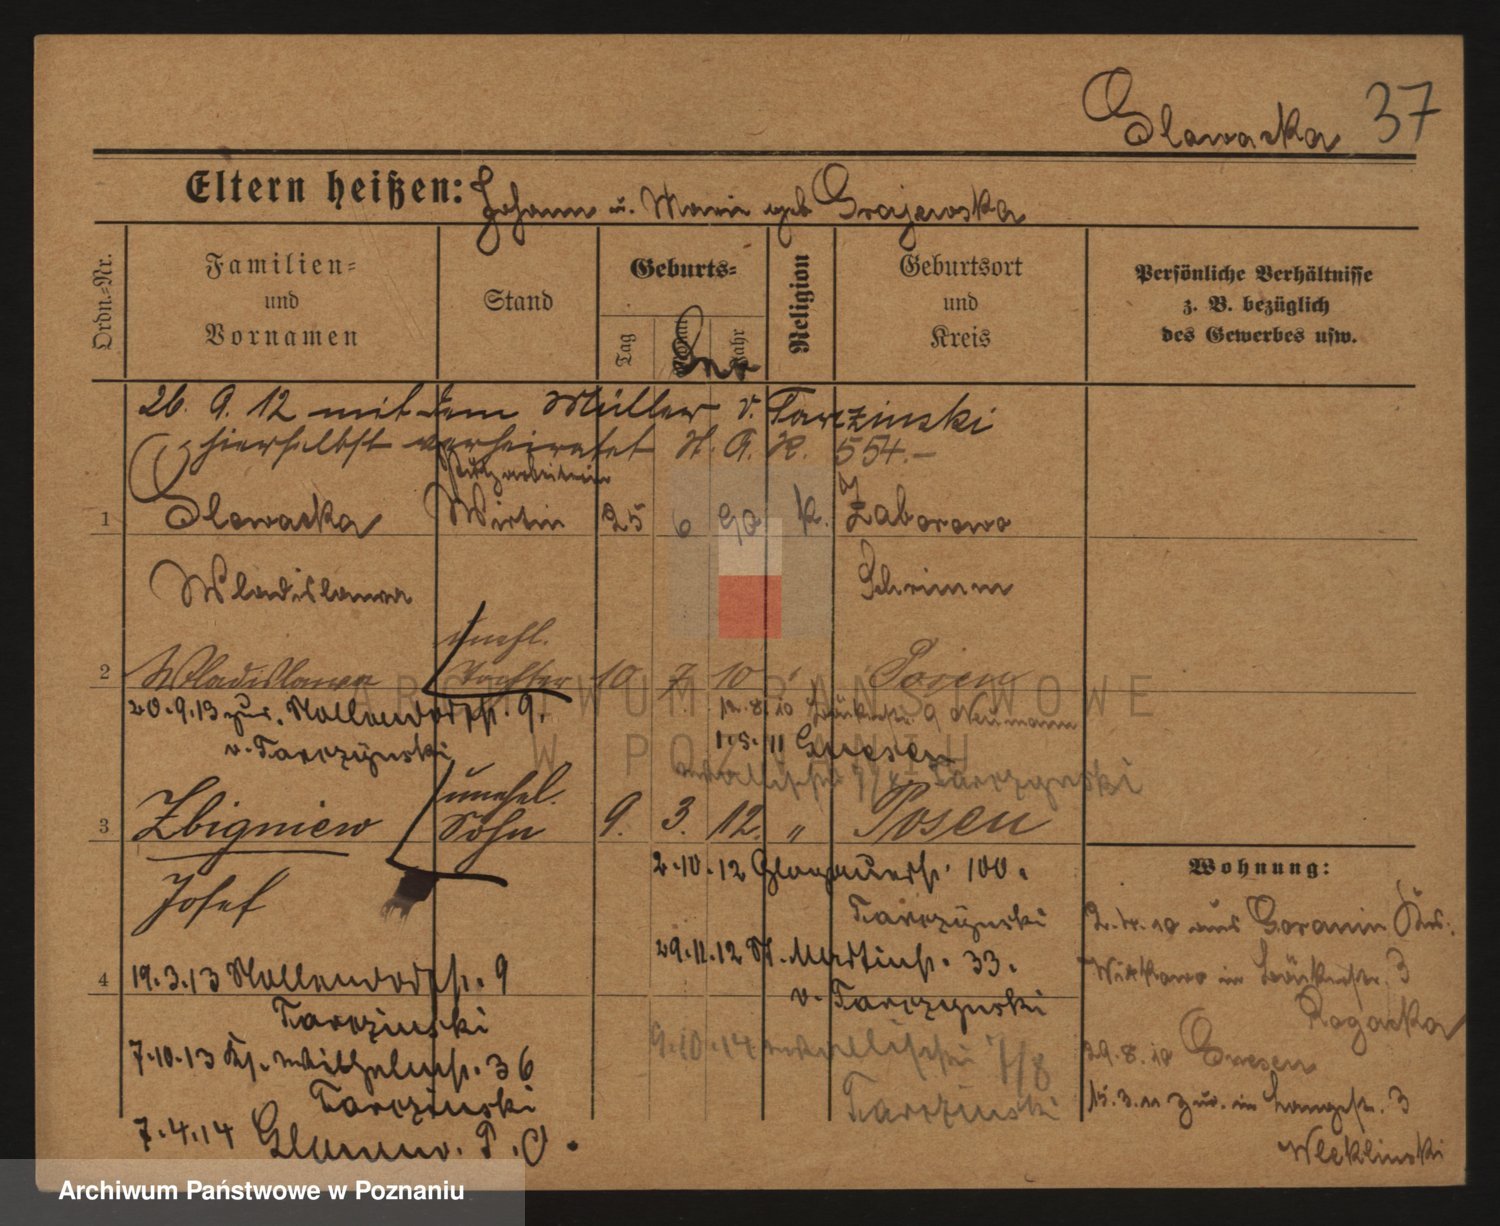 Slawaska 37
Eltern heißen: Johann u. Marie geb Grajewska
Ordn.-Nr.
Familien-
und
Vornamen
Stand
Geburts-
Tag
Monat
Jahr
Religion
Geburtsort
und
Kreis
Persönliche Verhältnisse
z. B. bezüglich
des Gewerbes usw.
26. 9. 12 mit dem Müller v. Tarczinski
hierselbst verheiratet H. A. R. 554.-
1 Slawaska Wirtin 25 6 90 k. Zaborowo
Wladislawa Schrimm
unehl.
2 Wladislawa Tochter 10 7 10 " Posen
20.9.13 zur. Nollendorfstr. 9.
v. Tarczynski
12.8.10 9 Neumann
1.5.11 Gnesen
Wallischei 7/8 Tarczynski
unehel.
3 Zbigniew Sohn 9. 3. 12. " Posen
Josef
2.10.12 Glogauerstr. 100.
Tarczynski
29.11.12 St. Martinstr. 33.
v. Tarczynski
4 19.3.13 Nollendorfstr. 9
Tarczinski
7.10.13 Ks. Wilhelmstr. 36
Tarczinski
7.4.14 P. O.
9.10.14 Wallischei 7/8
Tarczinski
Wohnung:
2.4.10 aus Goranin Krs.
Witkowo in Bäckerstr. 3
Rogaska
29.8.10 Gnesen
15.3.11 zur. in Langestr. 3
Wleklinski
ARCHIWUM PAŃSTWOWE
W POZNANIU
Archiwum Państwowe w Poznaniu